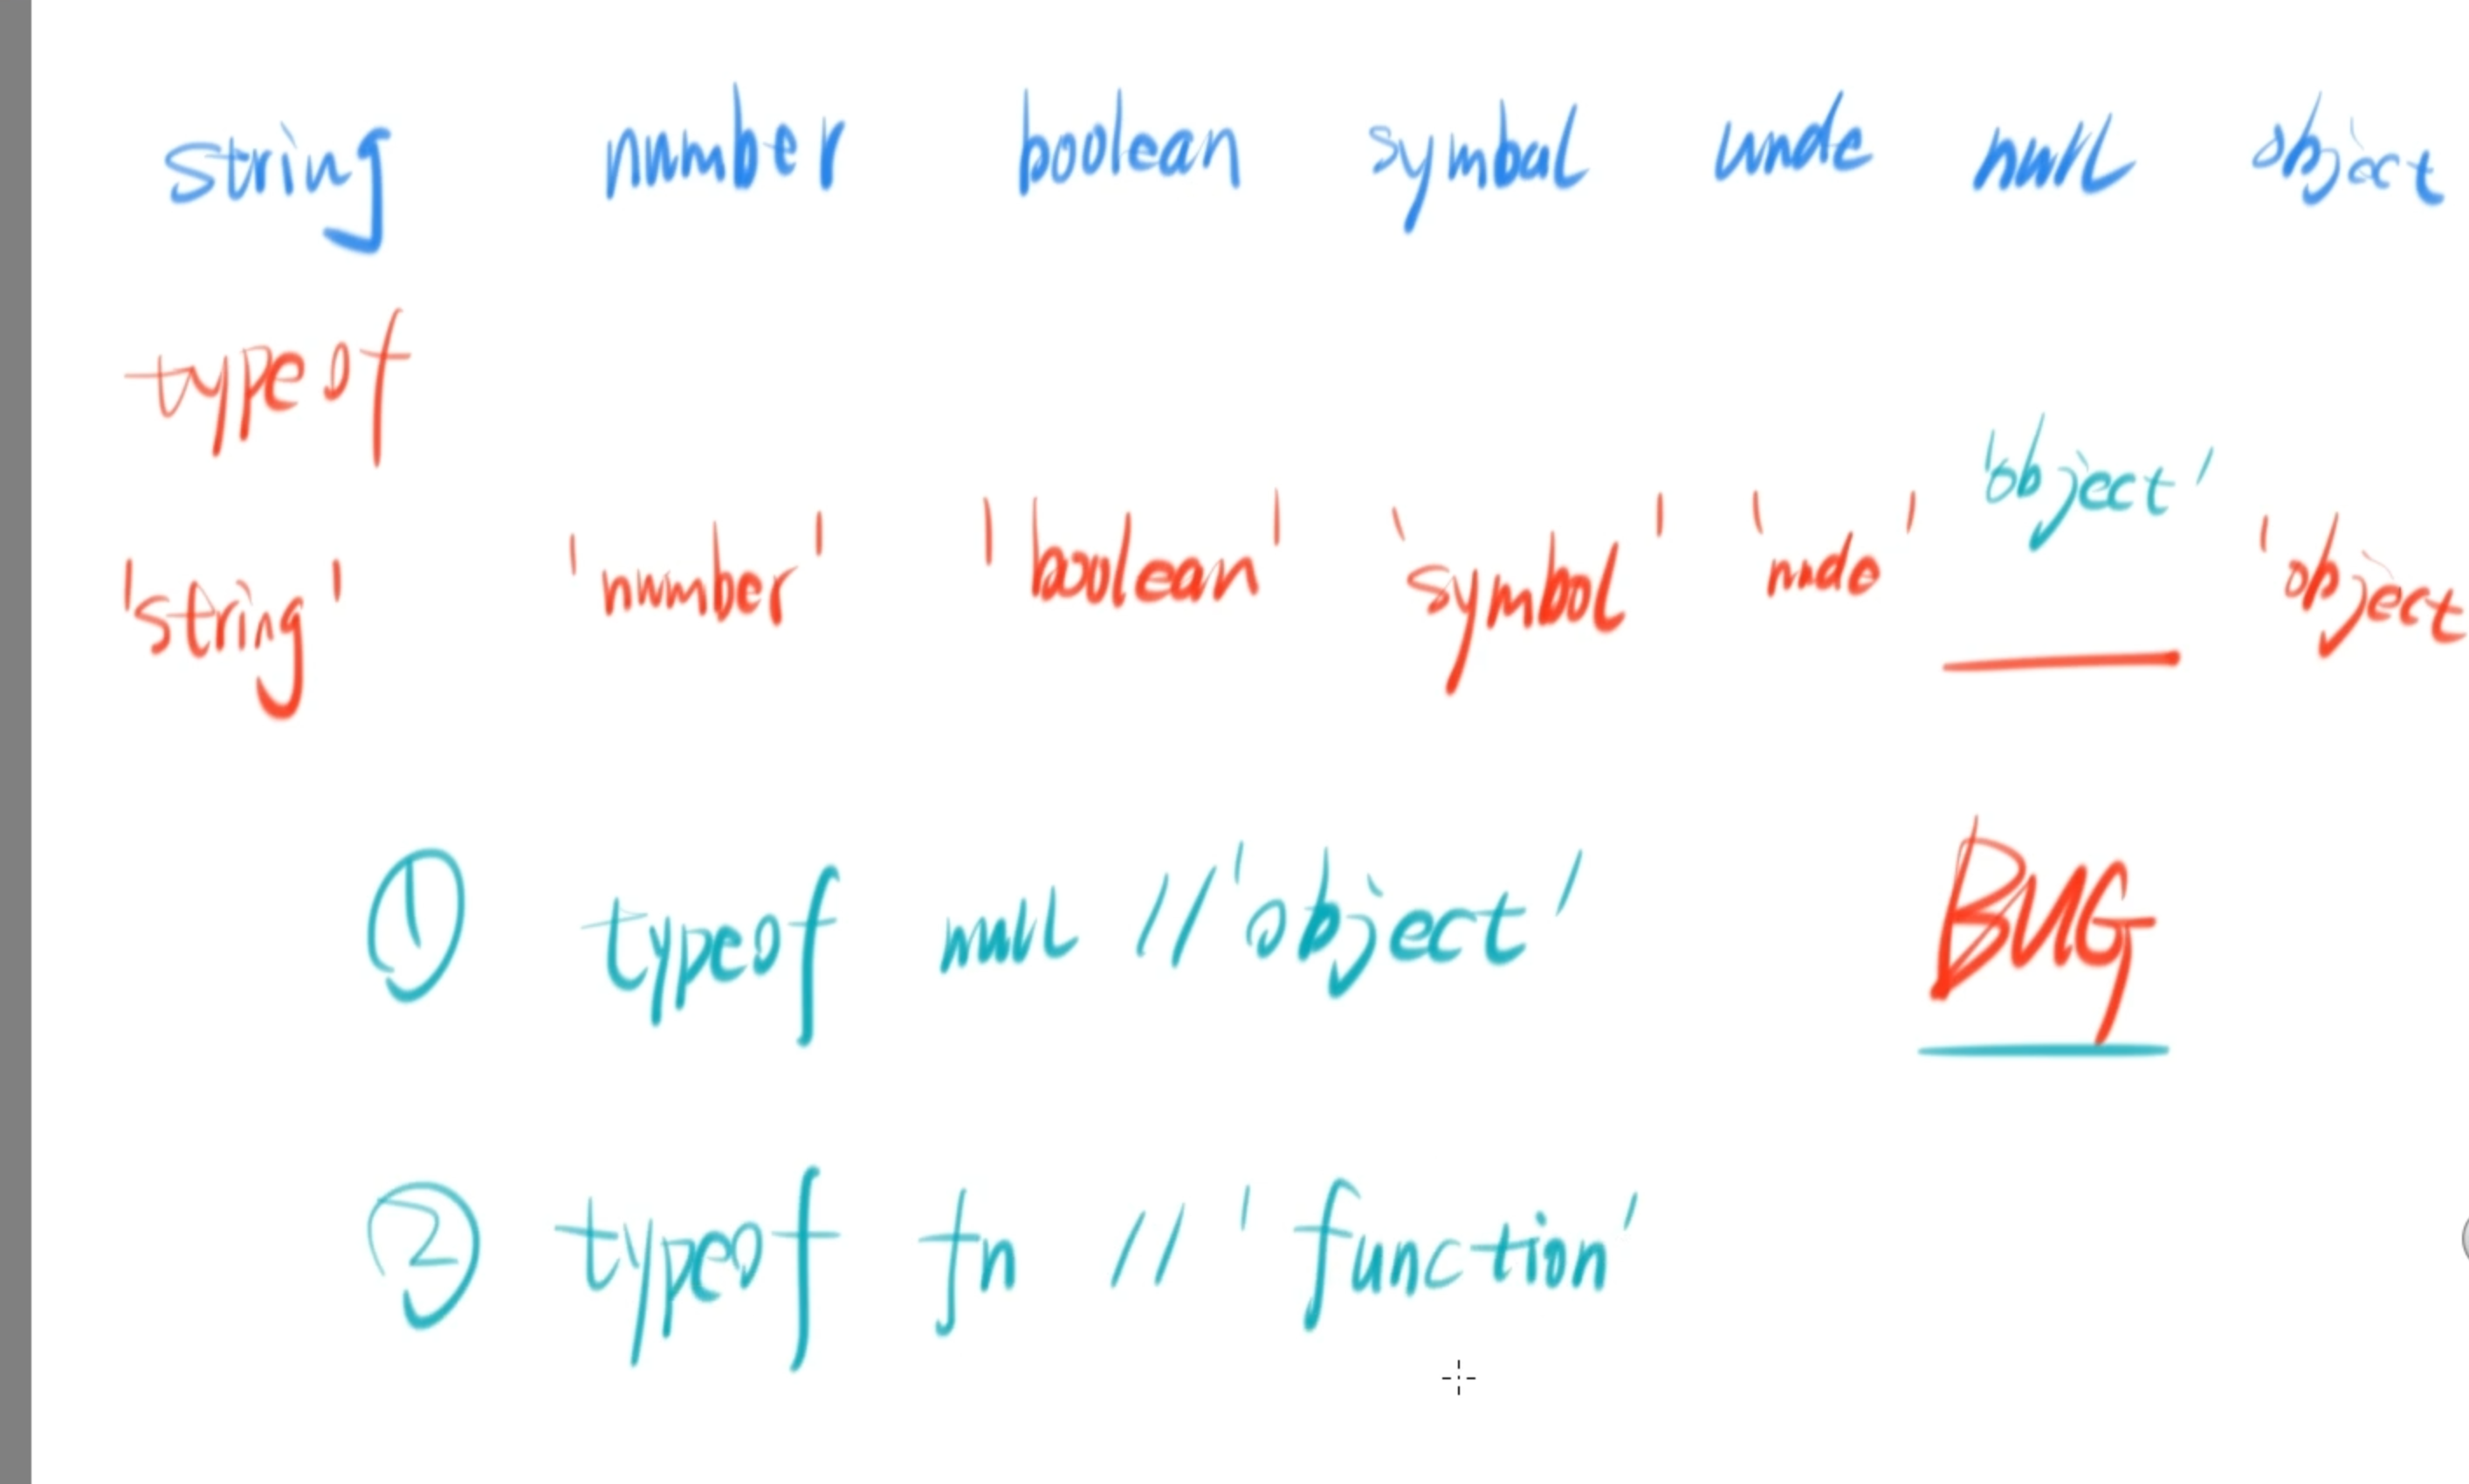 string number boolean symbal unde null object
typeof
'string' 'number' 'boolean' 'symbol' 'unde' 'object' 'object
① typeof null // 'object' BUG
② typeof fn // 'function'